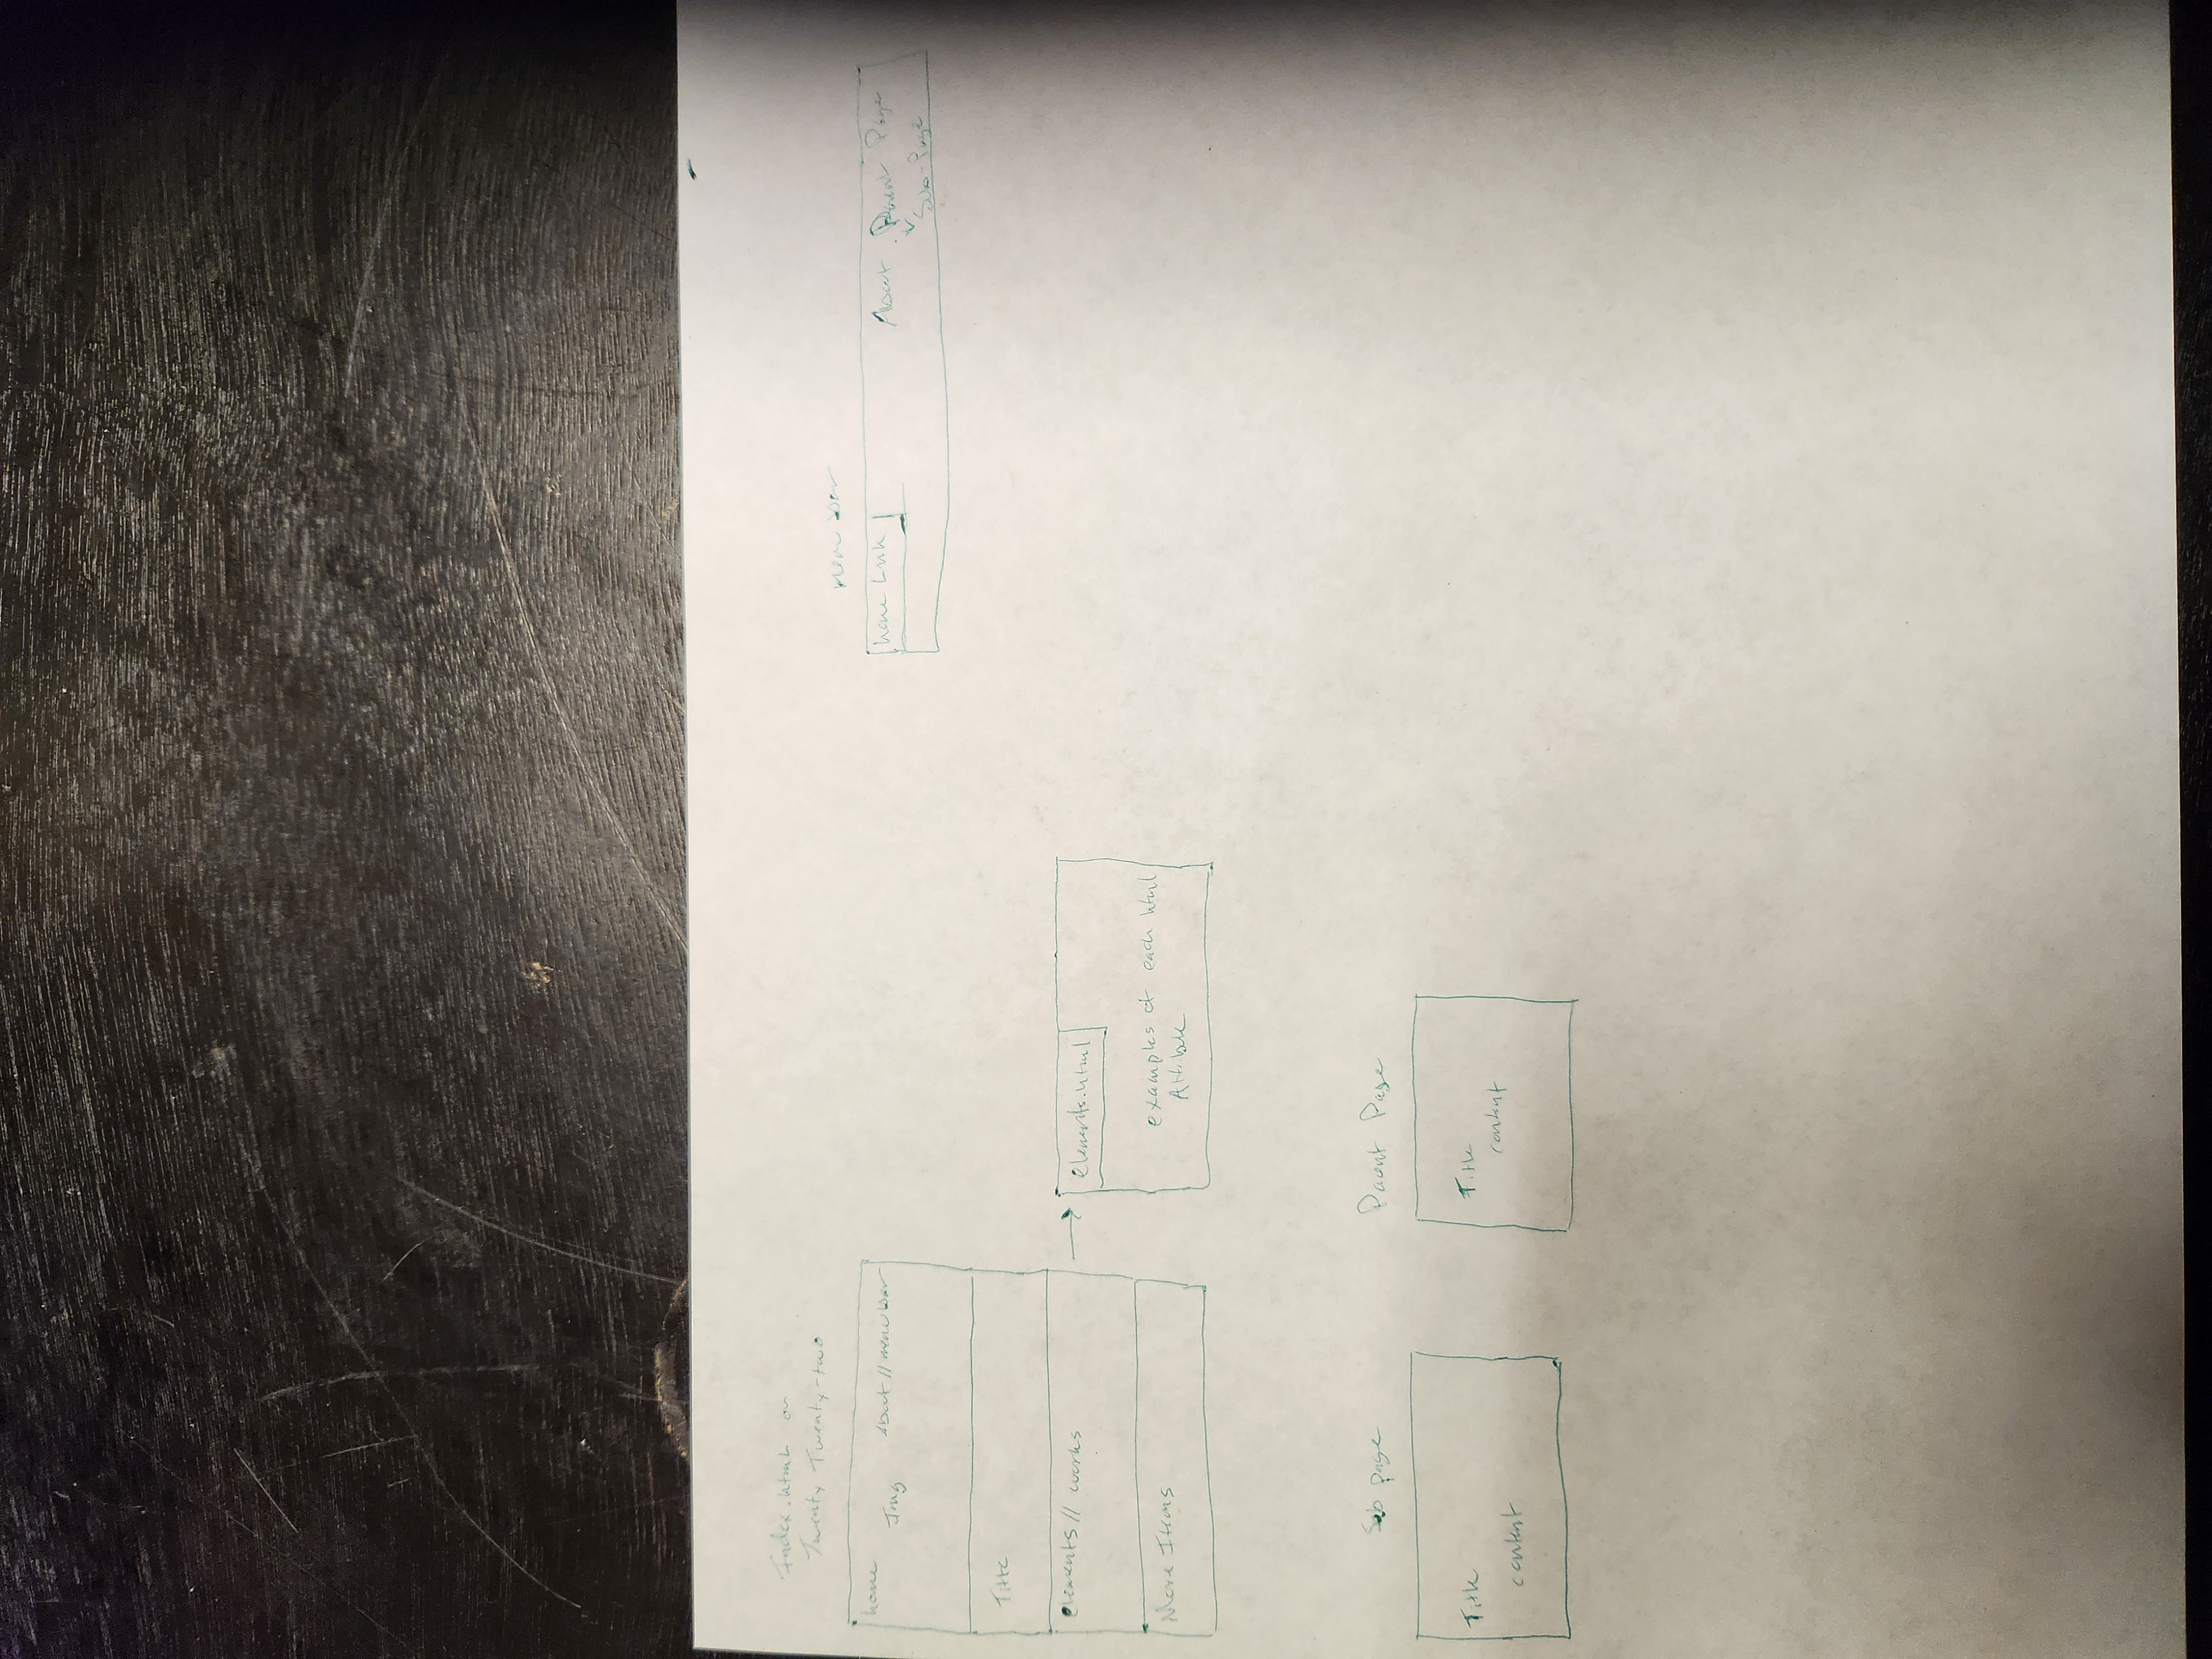 Index.html on
Twenty Twenty-two
home
Img
About // menu bar
Title
elements // works
More Items
elements.html
examples of each html
Attribute
menu bar
home Link
About
Parent Page
Sub-Page
Sub page
Title
content
Parent Page
Title
content